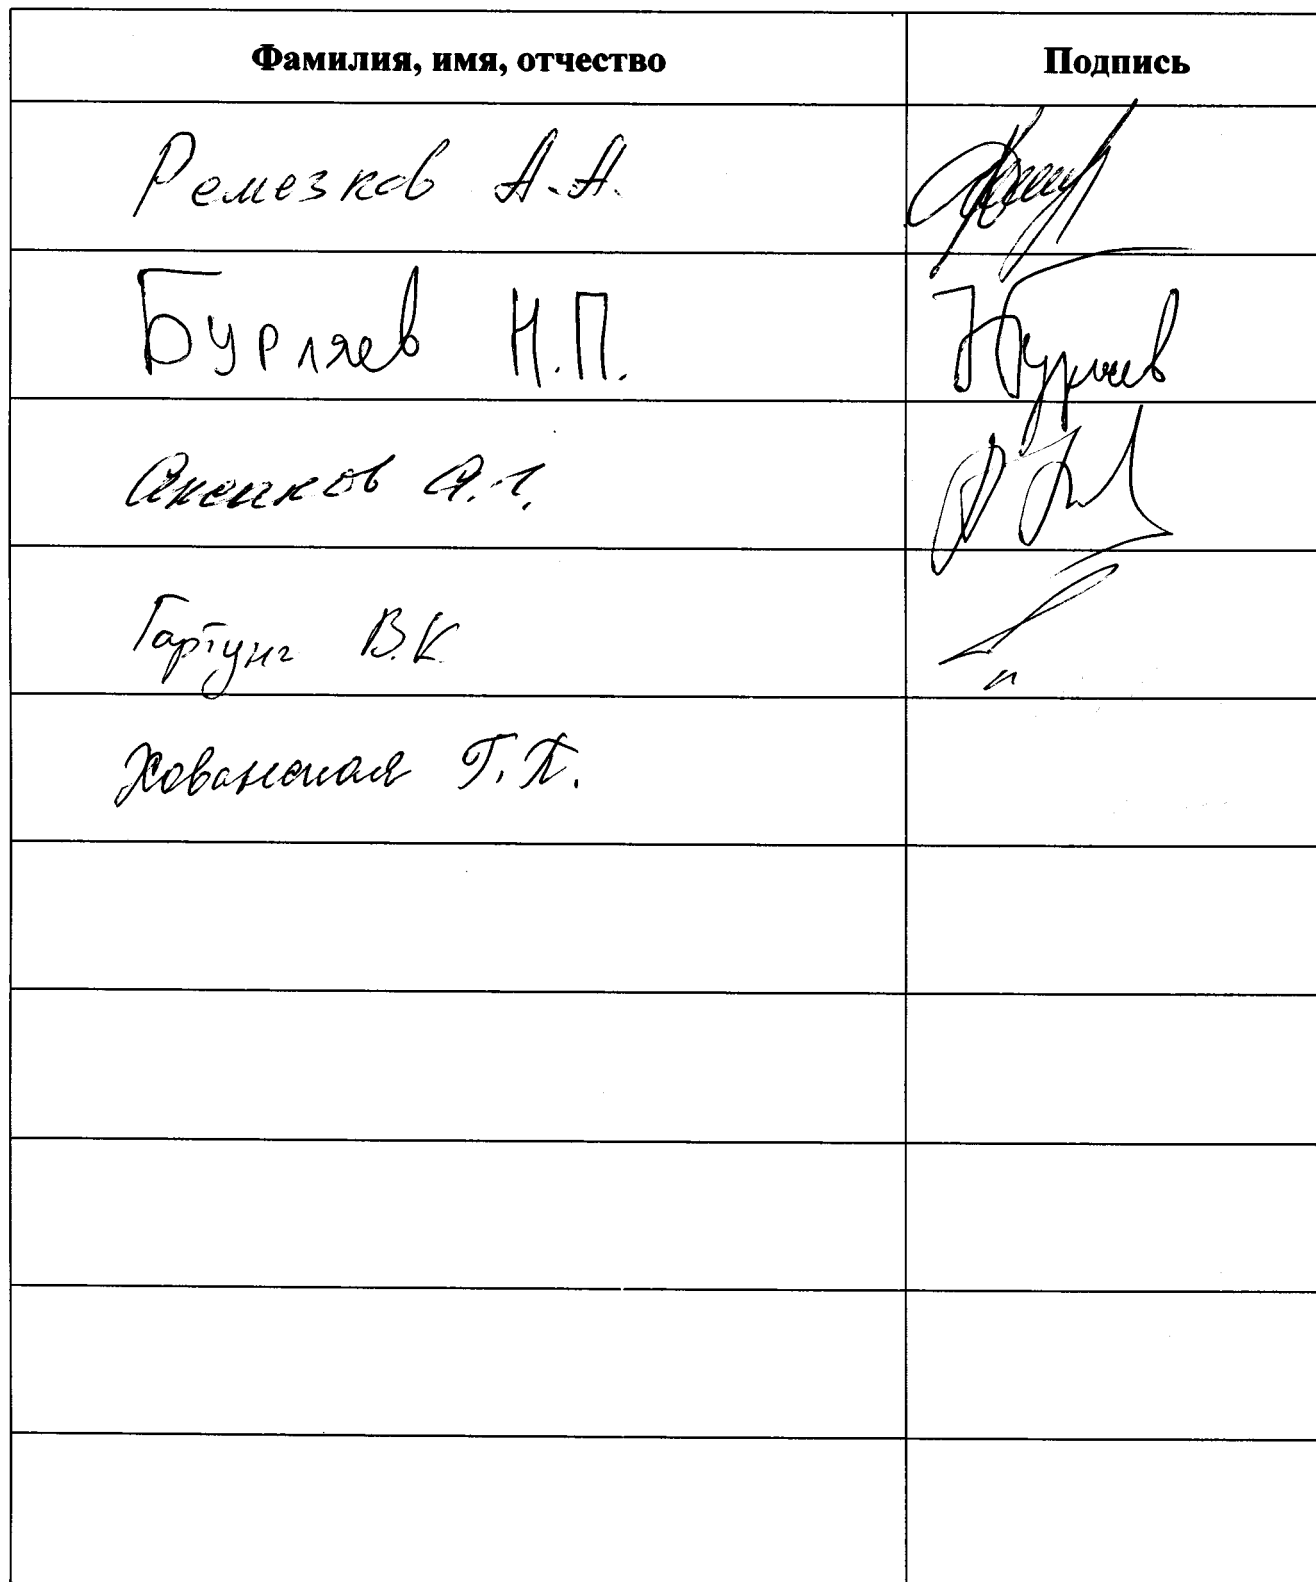 Фамилия, имя, отчество Подпись
Ремезков А.А.
Бурляев Н.П. НБурляев
Аксаков А.Г.
Гартунг В.К.
Хованская Г.П.